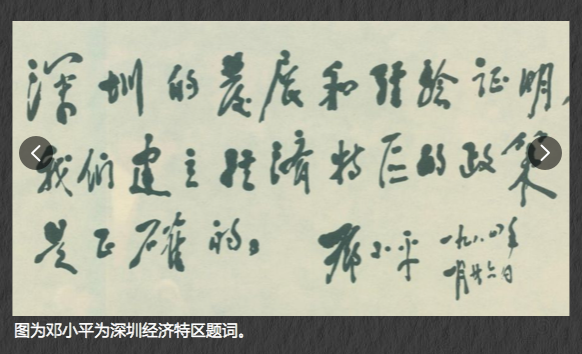 深圳的发展和经验证明,
我们建立经济特区的政策
是正确的。
邓小平
一九八四年
一月廿六日
图为邓小平为深圳经济特区题词。